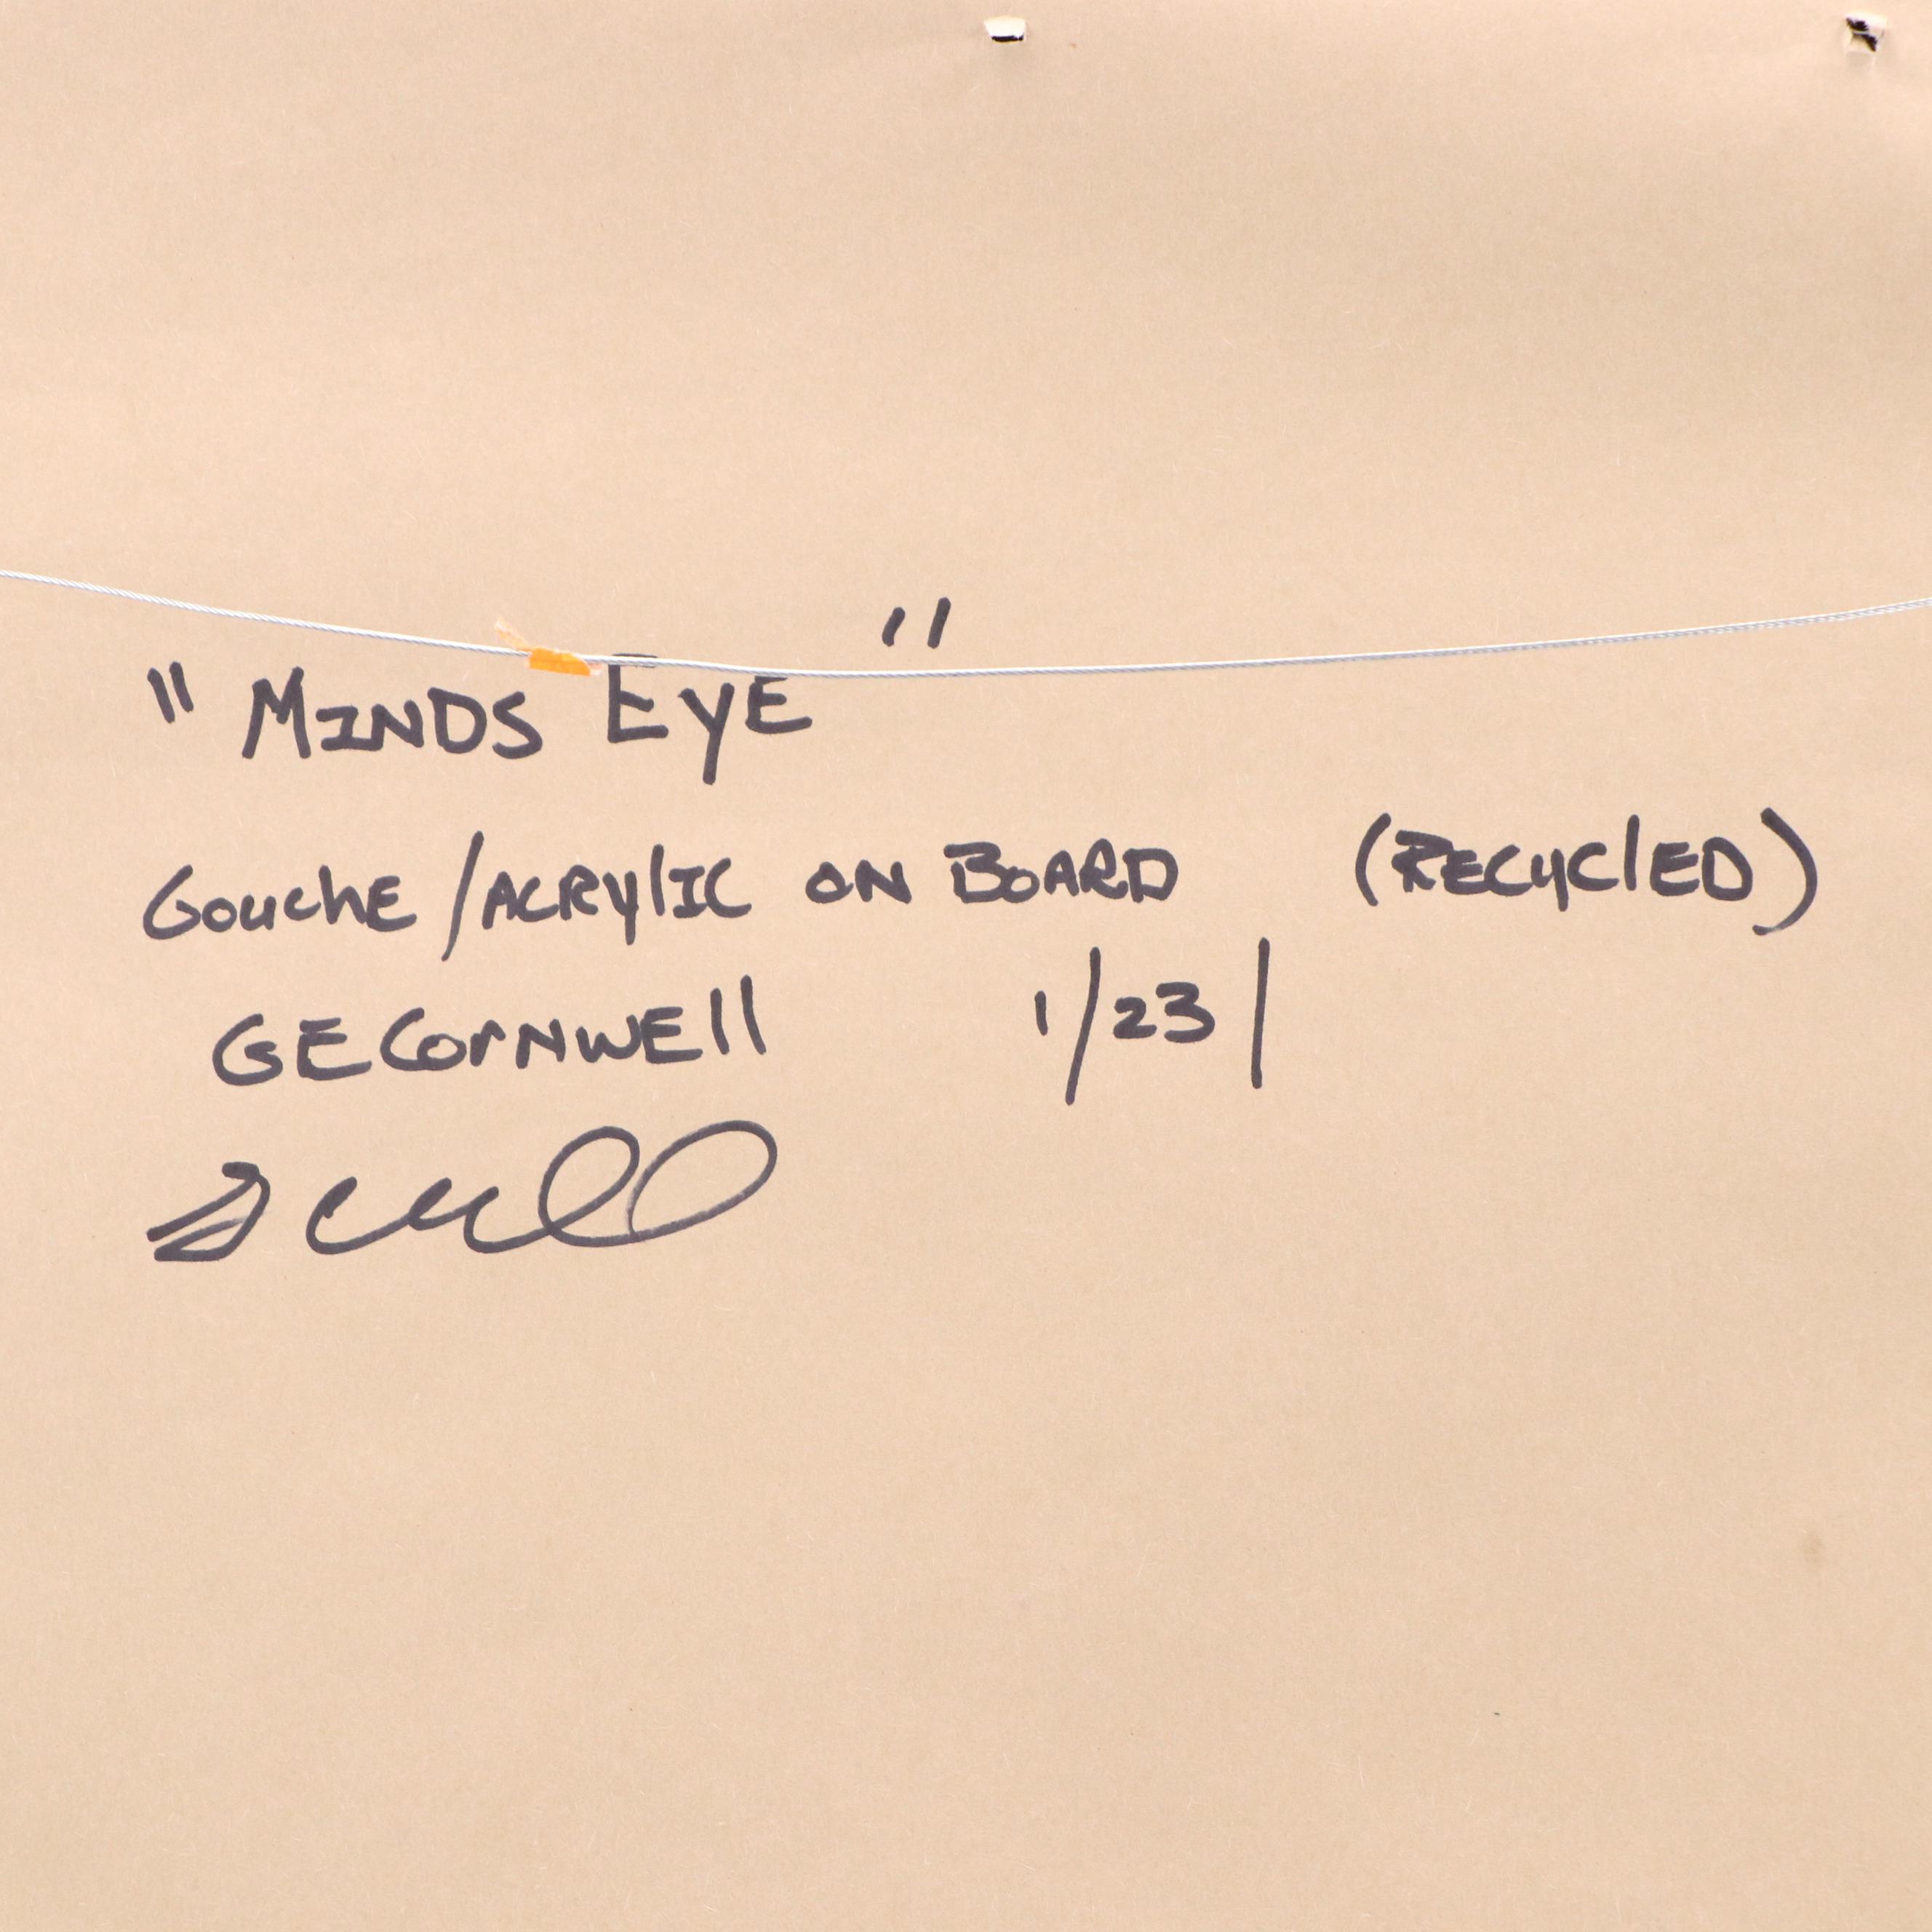 "MINDS EYE"
GouchE /ACRylIC ON BOARD (RECyclED)
GECorNWEll 1/23/